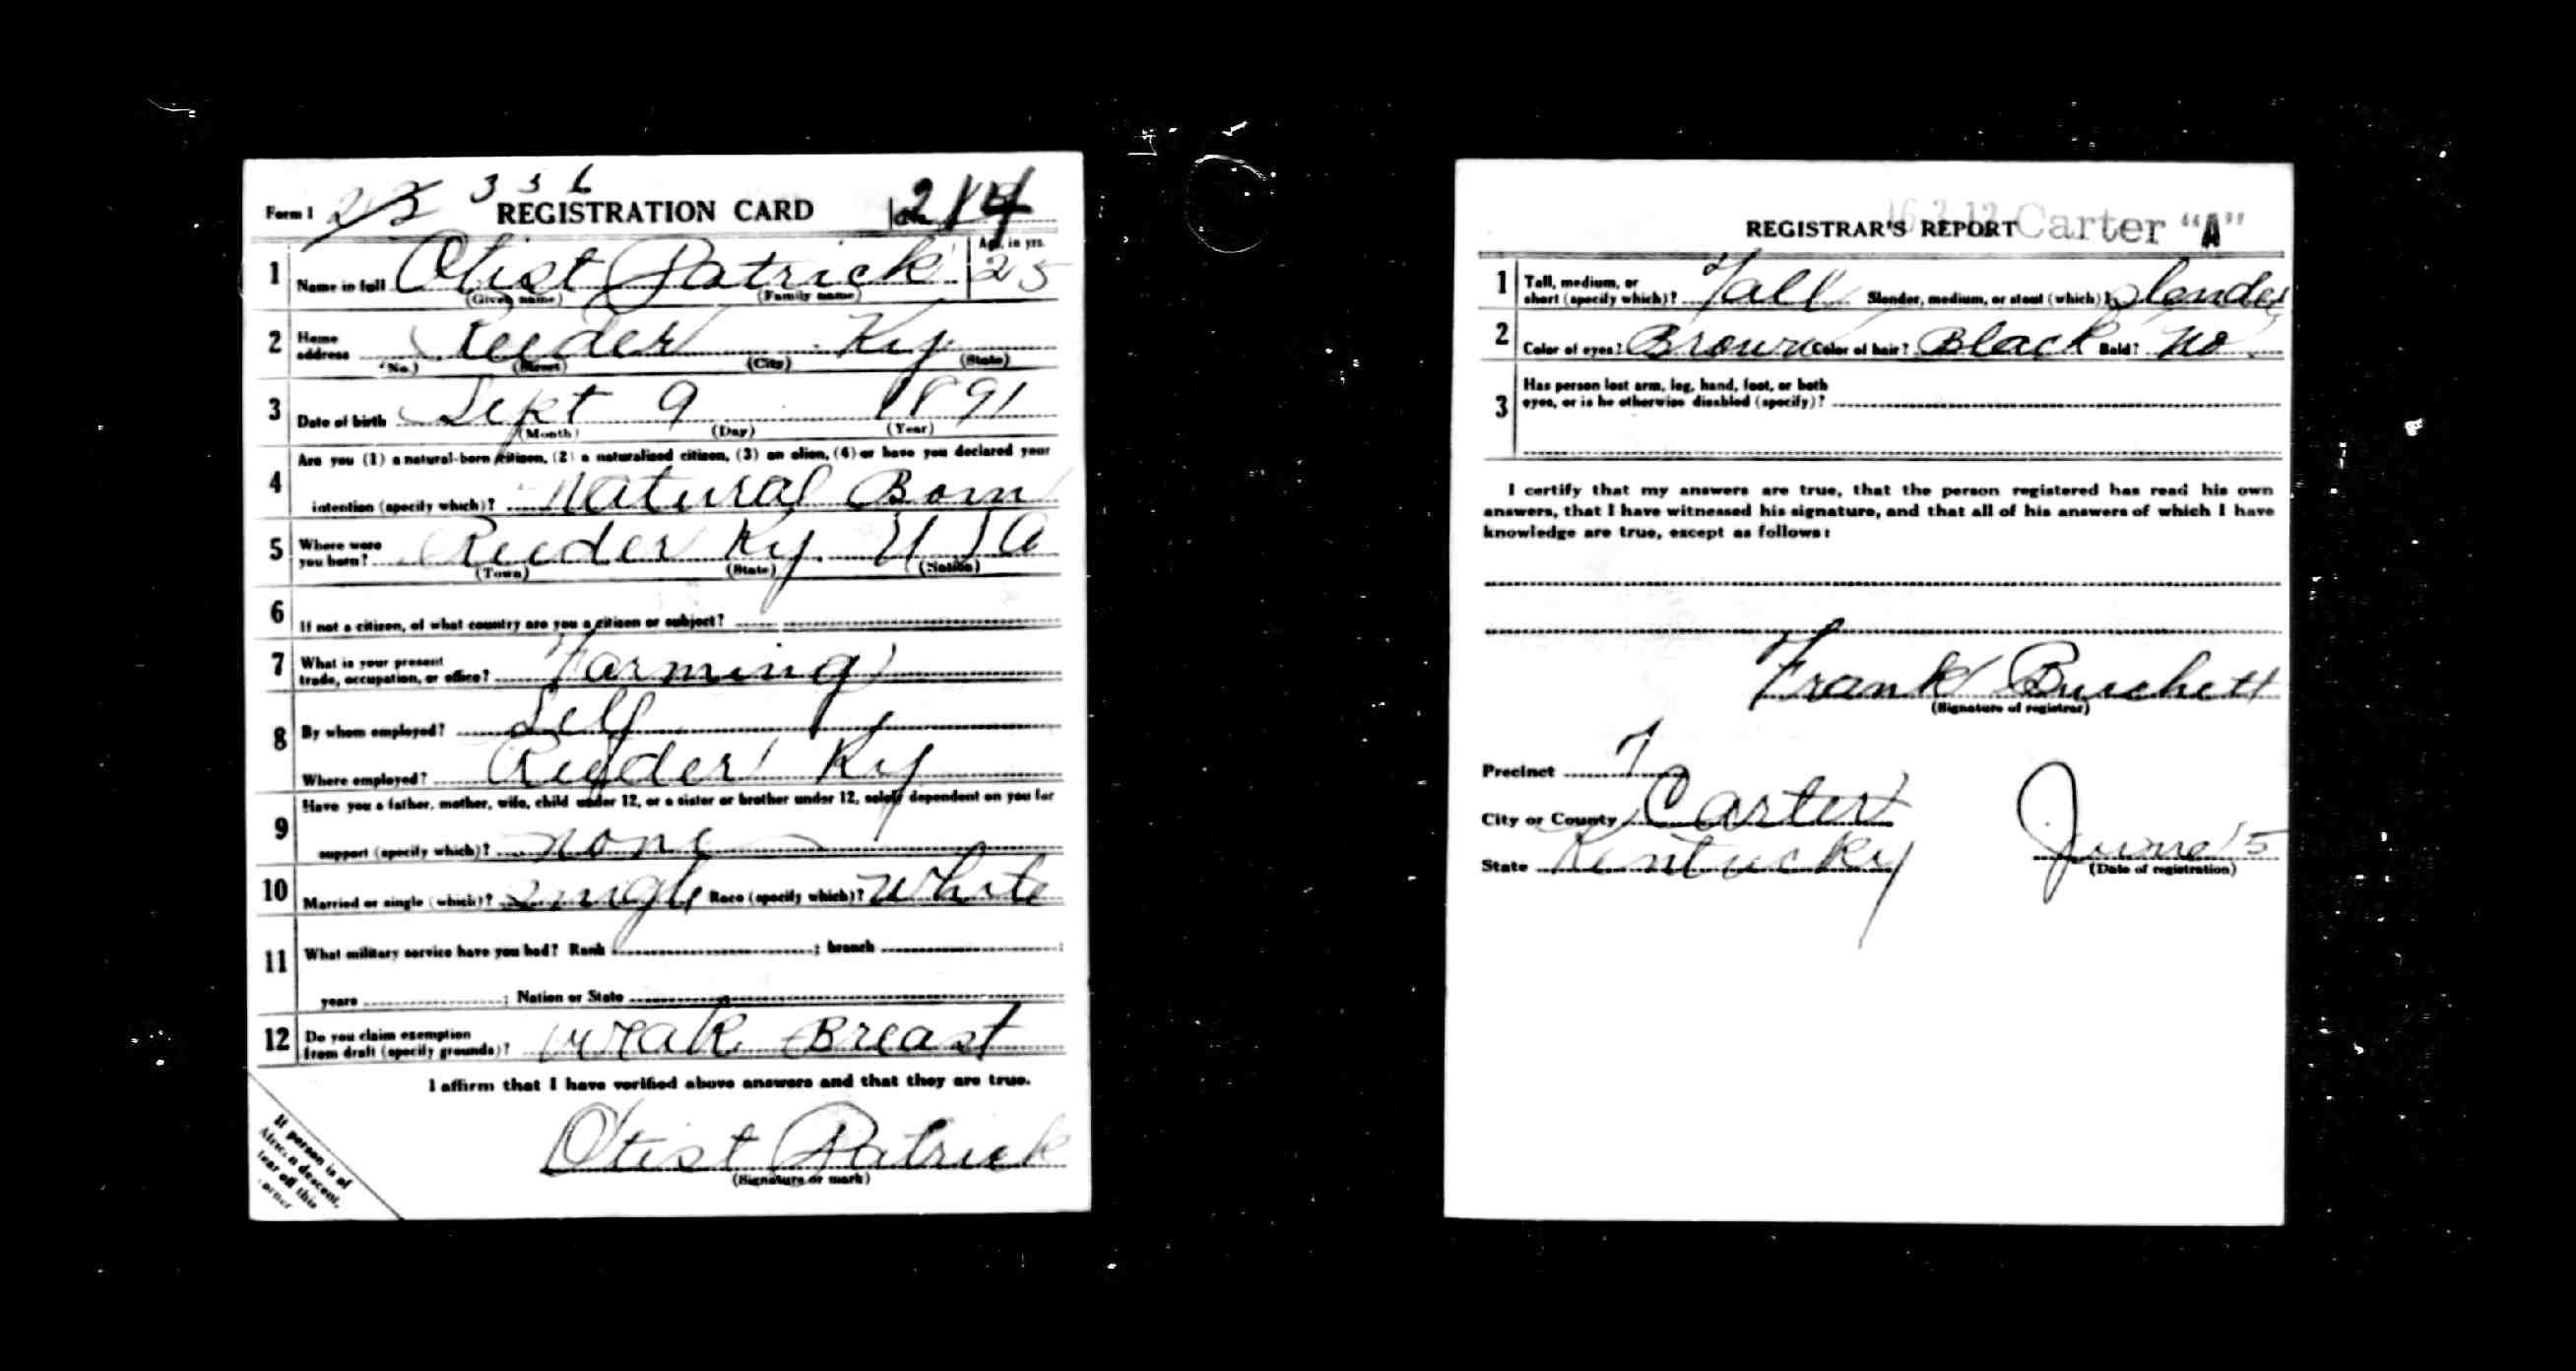 336
Form 1 REGISTRATION CARD 214
1 Name in full Otist Patrick Age, in yrs. 25
(Given name) (Family name)
2 Home address Reeder Ky
(No.) (Street) (City) (State)
3 Date of birth Sept 9 1891
(Month) (Day) (Year)
4 Are you (1) a natural-born citizen, (2) a naturalized citizen, (3) an alien, (4) or have you declared your
intention (specify which)? Natural Born
5 Where were you born? Reeder Ky U S A
(Town) (State) (Nation)
6 If not a citizen, of what country are you a citizen or subject?
7 What is your present
trade, occupation, or office? Farming
8 By whom employed? Self
Where employed? Reeder Ky
9 Have you a father, mother, wife, child under 12, or a sister or brother under 12, solely dependent on you for
support (specify which)? none
10 Married or single (which)? Single Race (specify which)? White
11 What military service have you had? Rank ; branch ;
years ; Nation or State
12 Do you claim exemption
from draft (specify grounds)? Weak Breast
I affirm that I have verified above answers and that they are true.
Otist Patrick
(Signature or mark)
If person is of
African descent,
tear off this
corner
REGISTRAR'S REPORT Carter "A"
1 Tall, medium, or
short (specify which)? Tall Slender, medium, or stout (which)? Slender
2 Color of eyes? Brown Color of hair? Black Bald? No
3 Has person lost arm, leg, hand, foot, or both
eyes, or is he otherwise disabled (specify)?
I certify that my answers are true, that the person registered has read his own
answers, that I have witnessed his signature, and that all of his answers of which I have
knowledge are true, except as follows:
Frank Burchett
(Signature of registrar)
Precinct 7
City or County Carter
State Kentucky June 5
(Date of registration)